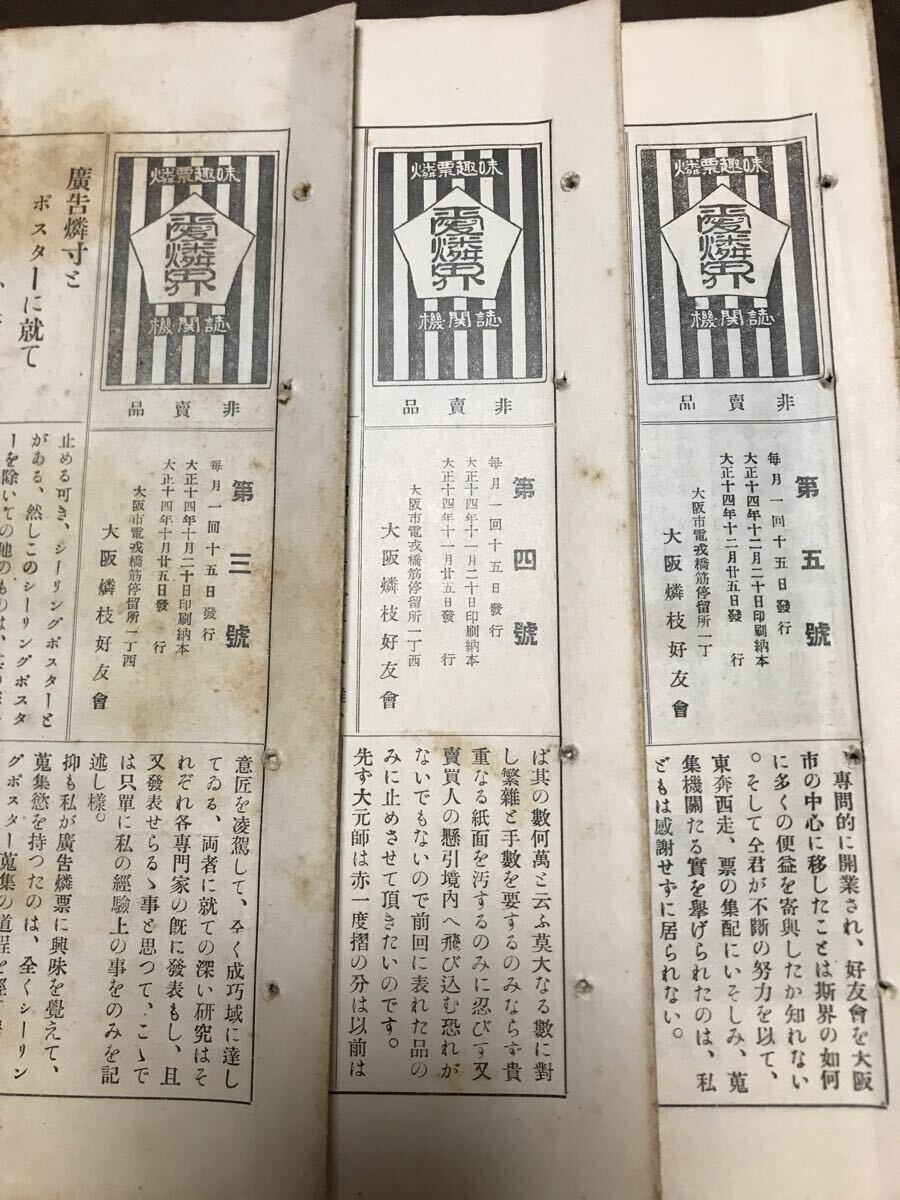 味趣票燐
愛燐界
誌関機
非賣品
第五號
每月一回十五日發行
大正十四年十二月二十日印刷納本
大正十四年十二月廿五日發行
大阪市電戎橋筋停留所一丁
大阪燐枝好友會
專問的に開業され、好友會を大阪
市の中心に移したことは斯界の如何
に多くの便益を寄與したか知れない
。そして仝君が不斷の努力を以て、
東奔西走、票の集配にいそしみ、蒐
集機關たる實を擧げられたのは、私
どもは感謝せずに居られない。
味趣票燐
愛燐界
誌関機
非賣品
第四號
每月一回十五日發行
大正十四年十一月二十日印刷納本
大正十四年十一月廿五日發行
大阪市電戎橋筋停留所一丁西
大阪燐枝好友會
ば其の數何萬と云ふ莫大なる數に對
し繁雜と手數を要するのみならず貴
重なる紙面を汚するのみに忍びす又
賣買人の懸引境內へ飛び込む恐れが
ないでもないので前回に表れた品の
みに止めさせて頂きたいのです。
先ず大元師は赤一度摺の分は以前は
味趣票燐
愛燐界
誌関機
非賣品
第三號
每月一回十五日發行
大正十四年十月二十日印刷納本
大正十四年十月廿五日發行
大阪市電戎橋筋停留所一丁西
大阪燐枝好友會
意匠を凌駕して、全く成巧域に達し
てゐる、兩者に就ての深い硏究はそ
れぞれ各專門家の旣に發表もし、且
又發表せらるゝ事と思つて、こゝで
は只單に私の經驗上の事をのみを記
述し樣。
抑も私が廣吿燐票に興味を覺えて、
蒐集慾を持つたのは、全くシーリン
グポスター蒐集の道程を經
廣吿燐寸と
ポスターに就て
止める可き、シーリングポスターと
がある、然しこのシーリングポスタ
ーを除いての他のものは、